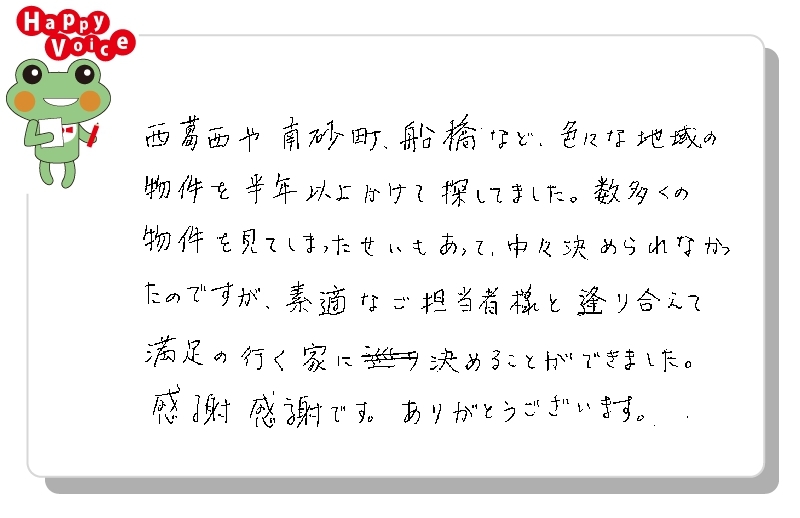 Happy
Voice
西葛西や南砂町、船橋など、色々な地域の
物件を半年以上かけて探してました。数多くの
物件を見てしまったせいもあって、中々決められなかっ
たのですが、素適なご担当者様と逢り合えて
満足の行く家に決めることができました。
感謝感謝です。ありがとうございます。